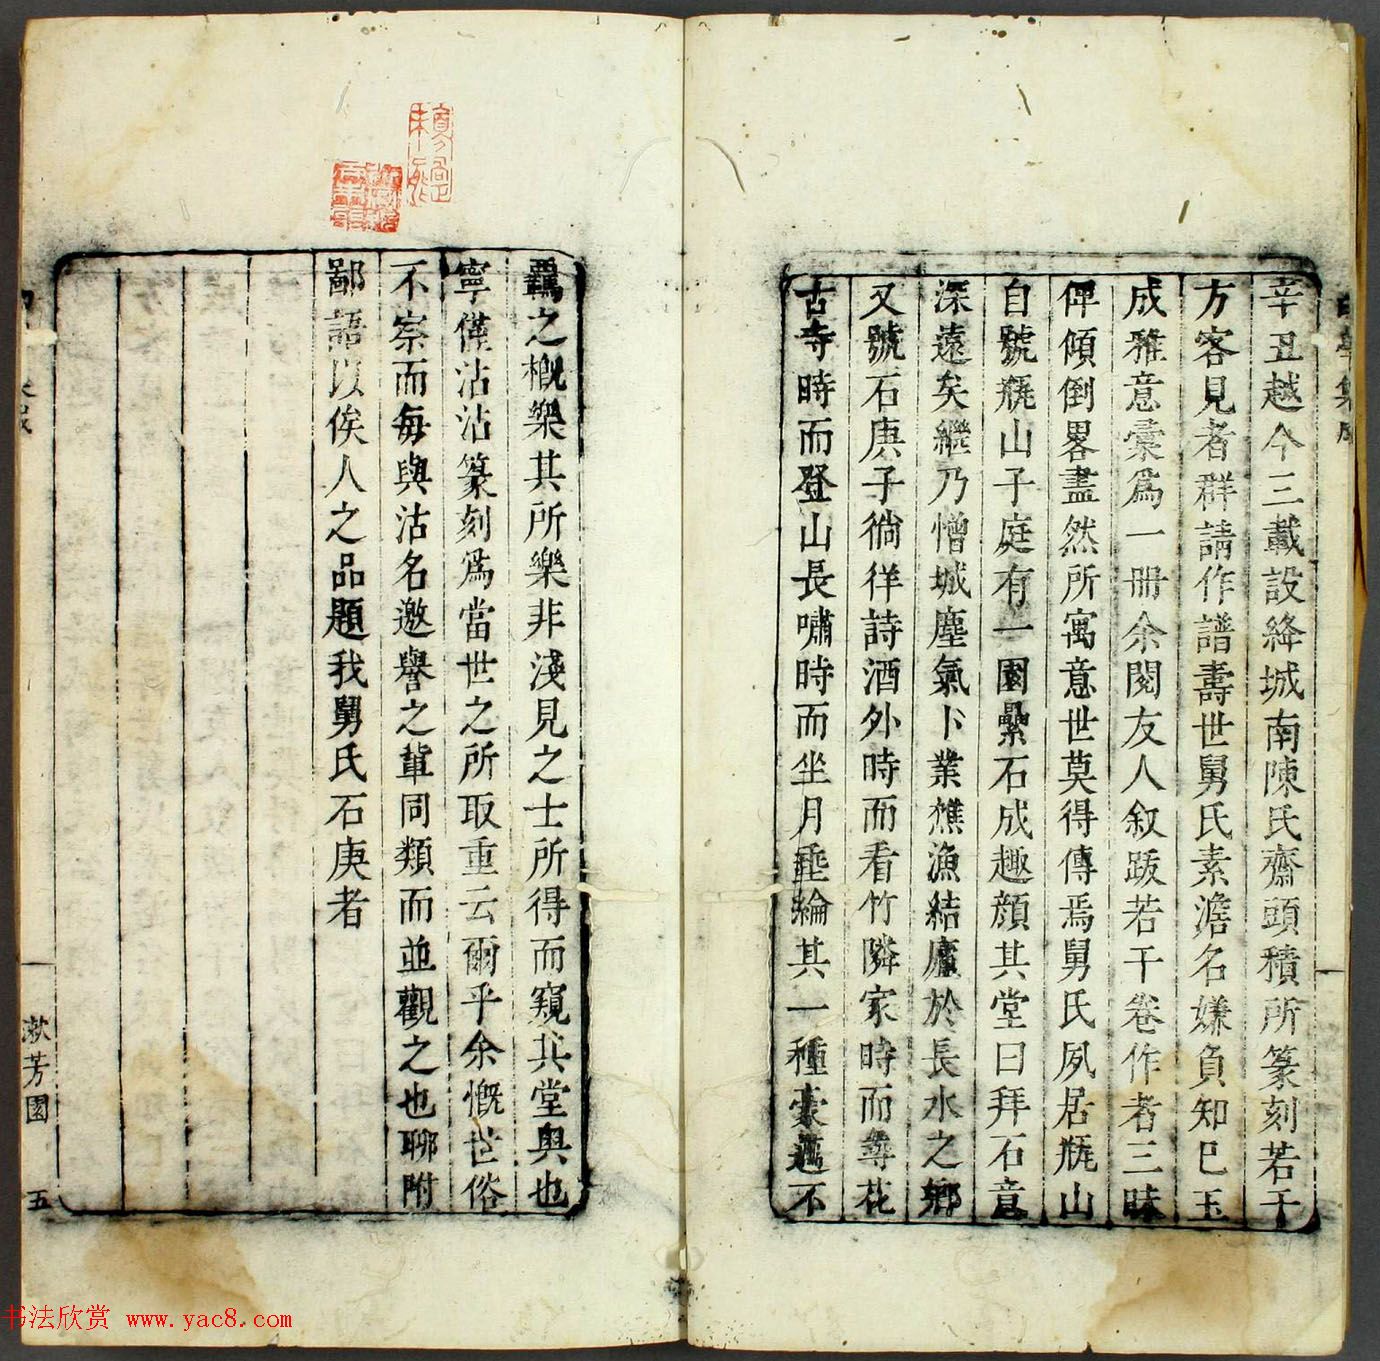 辛丑越今三載設絳城南陳氏齋頭積所篆刻若干
方客見者群請作譜壽世舅氏素澹名嫌負知巳玉
成雅意彙爲一册余閱友人叙跋若干卷作者三昧
俾傾倒畧盡然所寓意世莫得傳焉舅氏夙居瓶山
自號瓶山子庭有一園壘石成趣顏其堂曰拜石意
深遠矣繼乃憎城塵氣卜業樵漁結廬於長水之鄉
又號石庚子徜徉詩酒外時而看竹隣家時而尋花
古寺時而登山長嘯時而坐月垂綸其一種豪邁不
羈之槪樂其所樂非淺見之士所得而窺其堂奧也
寧僅沾沾篆刻爲當世之所取重云爾乎余慨世俗
不察而每與沽名邀譽之輩同類而並觀之也聊附
鄙語以俟人之品題我舅氏石庚者
漱芳園
五
书法欣赏 www.yac8.com